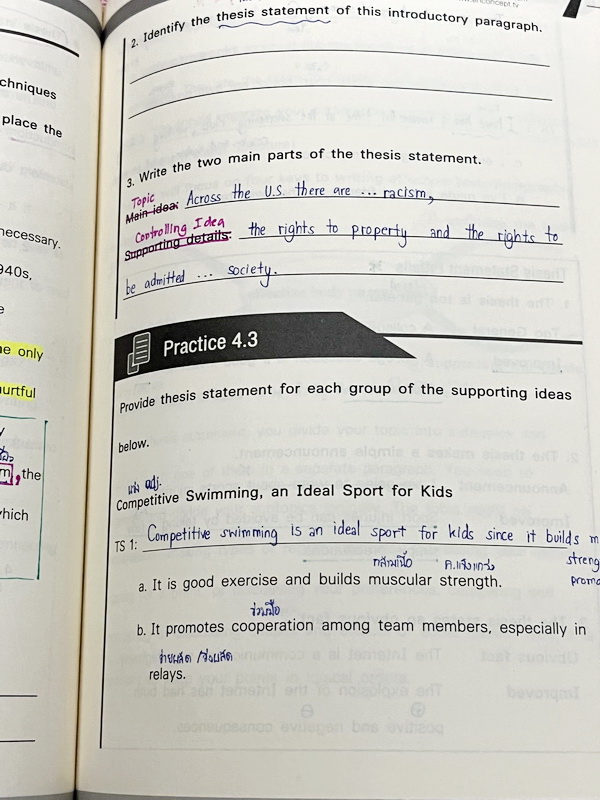 nconcept.tv
2. Identify the thesis statement of this introductory paragraph.
3. Write the two main parts of the thesis statement.
Topic
Main idea: Across the U.S. there are ... racism,
Controlling Idea
Supporting details: the rights to property and the rights to
be admitted ... society.
Practice 4.3
Provide thesis statement for each group of the supporting ideas
below.
adj.
Competitive Swimming, an Ideal Sport for Kids
TS 1: Competitive swimming is an ideal sport for kids since it builds m
streng
promo
กล้ามเนื้อ ค.แข็งแกร่ง
a. It is good exercise and builds muscular strength.
ร่วมมือ
b. It promotes cooperation among team members, especially in
relays.
chniques
place the
necessary.
940s,
e
e only
urtful
m, the
which